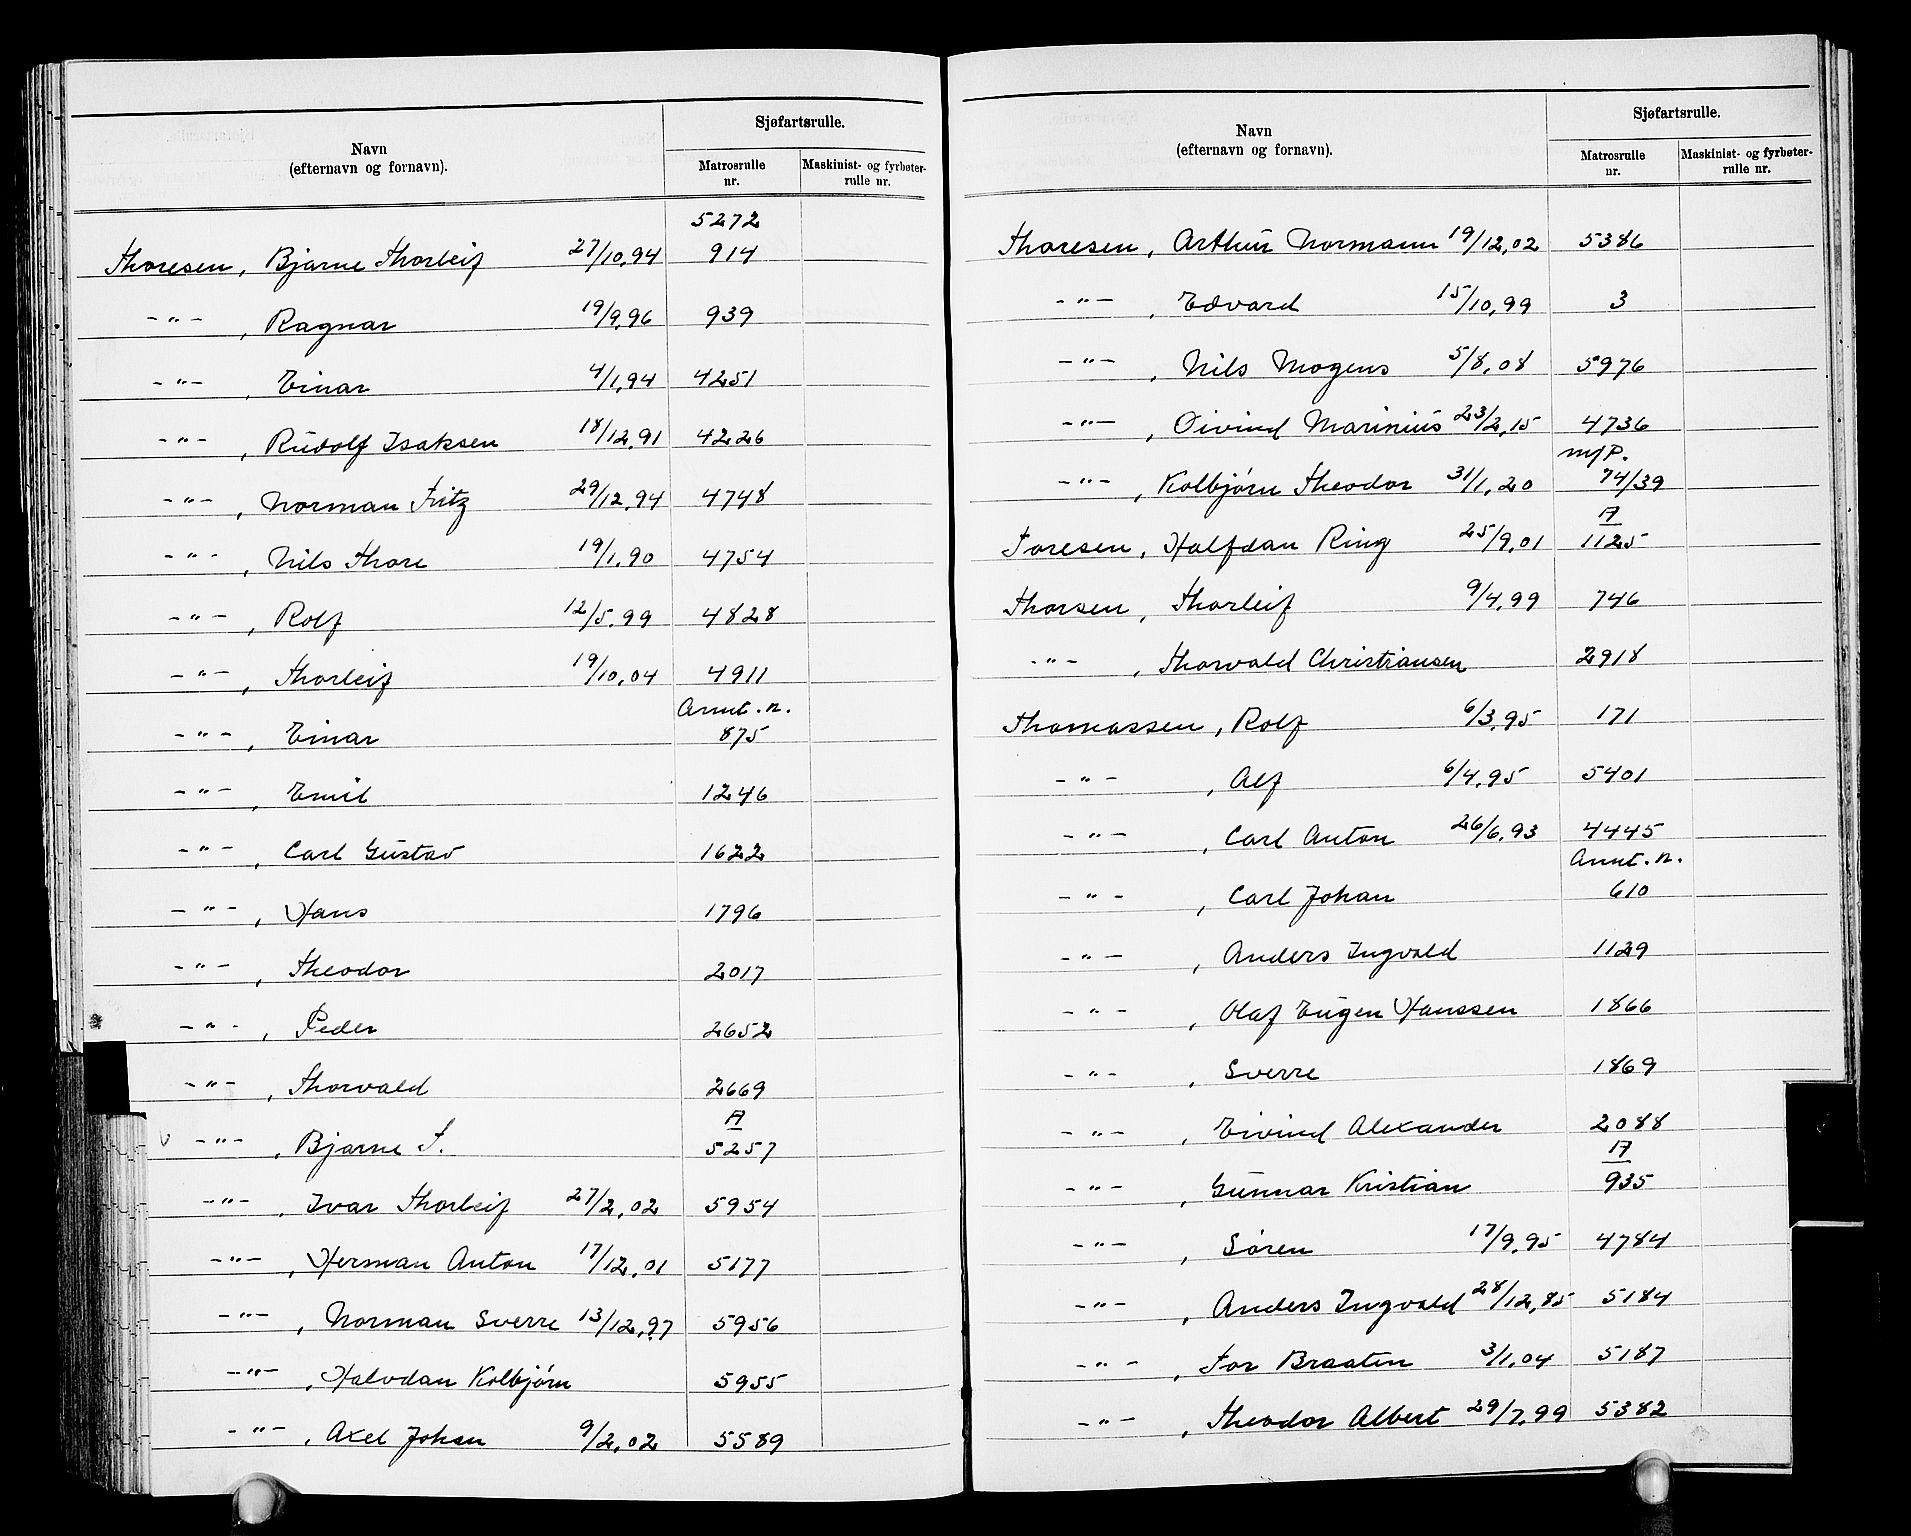 Navn
(efternavn og fornavn).
Sjøfartsrulle.
Matrosrulle nr.
Maskinist- og fyrbøter-rulle nr.
5272
Thoresen, Bjarne Thorleif 27/10,94 914
-"-, Ragnar 19/9,96 939
-"-, Einar 4/1,94 4251
-"-, Rudolf Isaksen 18/12,91 4226
-"-, Norman Fritz 29/12,94 4748
-"-, Nils Thore 19/1,90 4754
-"-, Rolf 12/5,99 4828
-"-, Thorleif 19/10,04 4911
Annt.n.
-"-, Einar 875
-"-, Emil 1246
-"-, Carl Gustav 1622
-"-, Hans 1796
-"-, Theodor 2017
-"-, Peder 2652
-"-, Thorvald 2669
A
v -"-, Bjarne T. 5257
-"-, Ivar Thorleif 27/2,02 5954
-"-, Herman Anton 17/12,01 5177
-"-, Norman Sverre 13/12,97 5956
-"-, Halvdan Kolbjørn 5955
-"-, Axel Johan 9/2,02 5589
Navn
(efternavn og fornavn).
Sjøfartsrulle.
Matrosrulle nr.
Maskinist- og fyrbøter-rulle nr.
Thoresen, Arthur Normann 19/12,02 5386
-"-, Edvard 15/10,99 3
-"-, Nils Mogens 5/8,08 5976
-"-, Oivind Marinius 23/2,15 4736
m/P.
-"-, Kolbjørn Theodor 31/1,20 74/39
A
Toresen, Halfdan Ring 25/9,01 1125
Thorsen, Thorleif 9/4,99 746
-"-, Thorvald Christiansen 2918
Thomassen, Rolf 6/3,95 171
-"-, Alf 6/4,95 5401
-"-, Carl Anton 26/6,93 4445
Annt.n.
-"-, Carl Johan 610
-"-, Anders Ingvald 1129
-"-, Olaf Eugen Hanssen 1866
-"-, Sverre 1869
-"-, Eivind Alexander 2088
A
-"-, Gunnar Kristian 935
-"-, Søren 17/9,95 4784
-"-, Anders Ingvald 28/12,85 5184
-"-, Tor Braaten 3/1,04 5187
-"-, Theodor Albert 29/7,99 5382